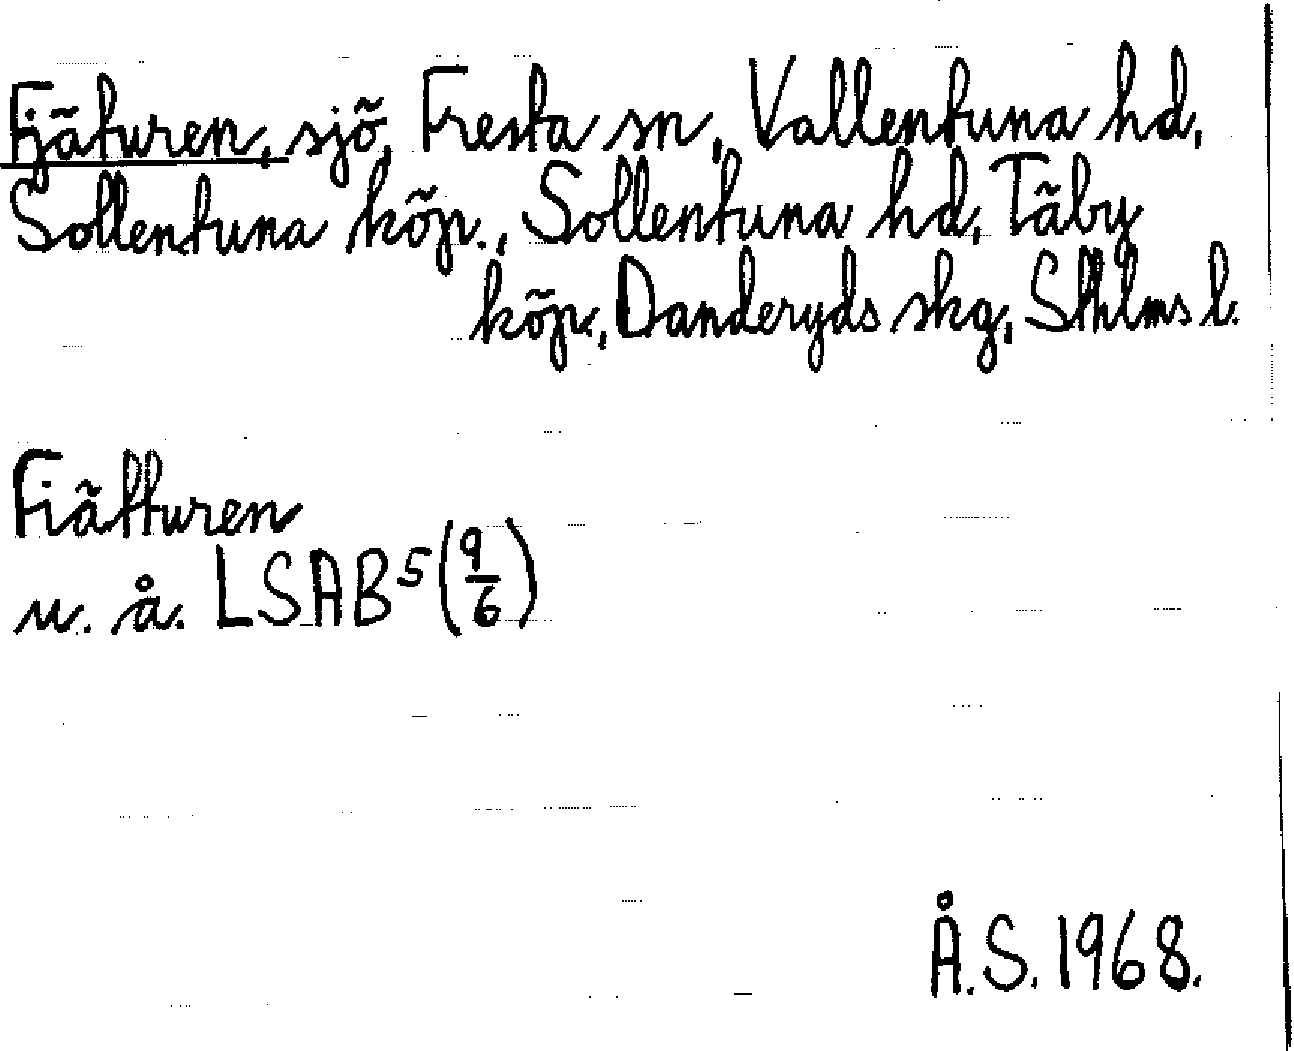 Fjäturen, sjö, Fresta sn, Vallentuna hd,
Sollentuna köp., Sollentuna hd, Täby
köp., Danderyds skg, Sthlms l.
Fiätturen
u. å. LSAB⁵ (9/6)
Å.S. 1968.